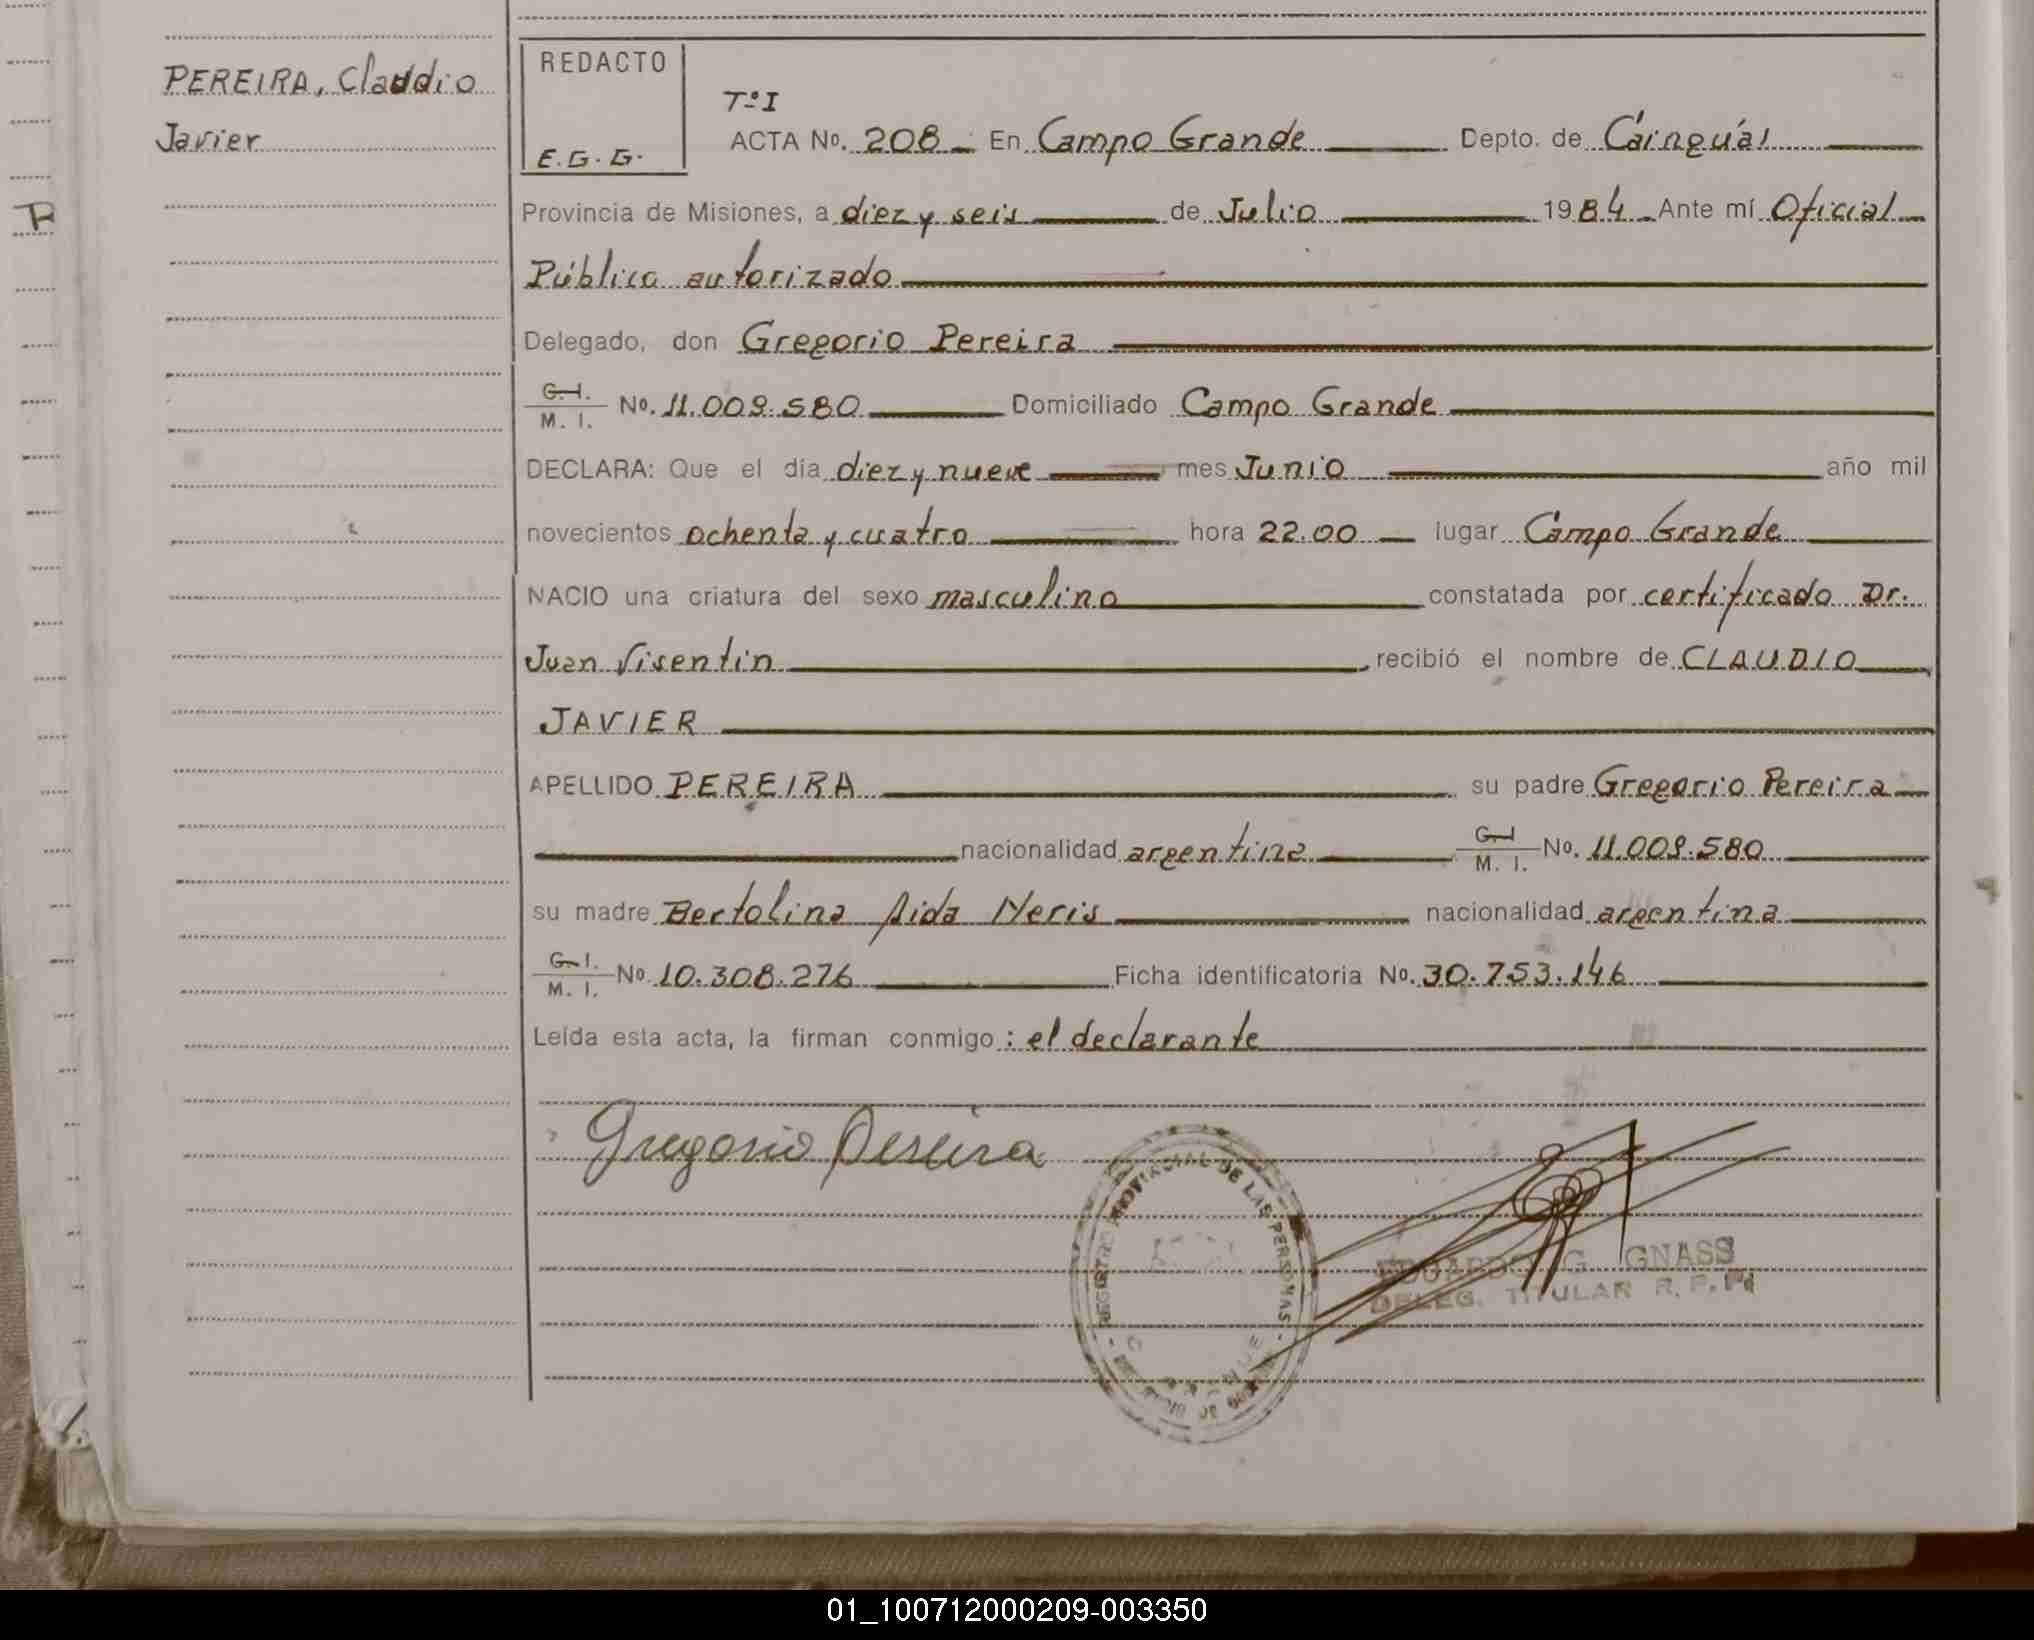 PEREIRA, Claudio
Javier
P
REDACTO
E.G.G.
Tº I
ACTA No. 208 En Campo Grande Depto. de Cainguás
Provincia de Misiones, a diez y seis de Julio 1984 Ante mí Oficial
Público autorizado
Delegado, don Gregorio Pereira
C. I. / M. I. No. 11.009.580 Domiciliado Campo Grande
DECLARA: Que el día diez y nueve mes Junio año mil
novecientos ochenta y cuatro hora 22.00 lugar Campo Grande
NACIO una criatura del sexo masculino constatada por certificado Dr.
Juan Visentin, recibió el nombre de CLAUDIO
JAVIER
APELLIDO PEREIRA su padre Gregorio Pereira
nacionalidad argentina C. I. / M. I. No. 11.009.580
su madre Bertolina Aida Neris nacionalidad argentina
C. I. / M. I. No. 10.308.276 Ficha identificatoria No. 30.753.146
Leída esta acta, la firman conmigo : el declarante
Gregorio Pereira
REGISTRO PROVINCIAL DE LAS PERSONAS
EDUARDO G. GNASS
DELEG. TITULAR R. P. P.
01_100712000209-003350